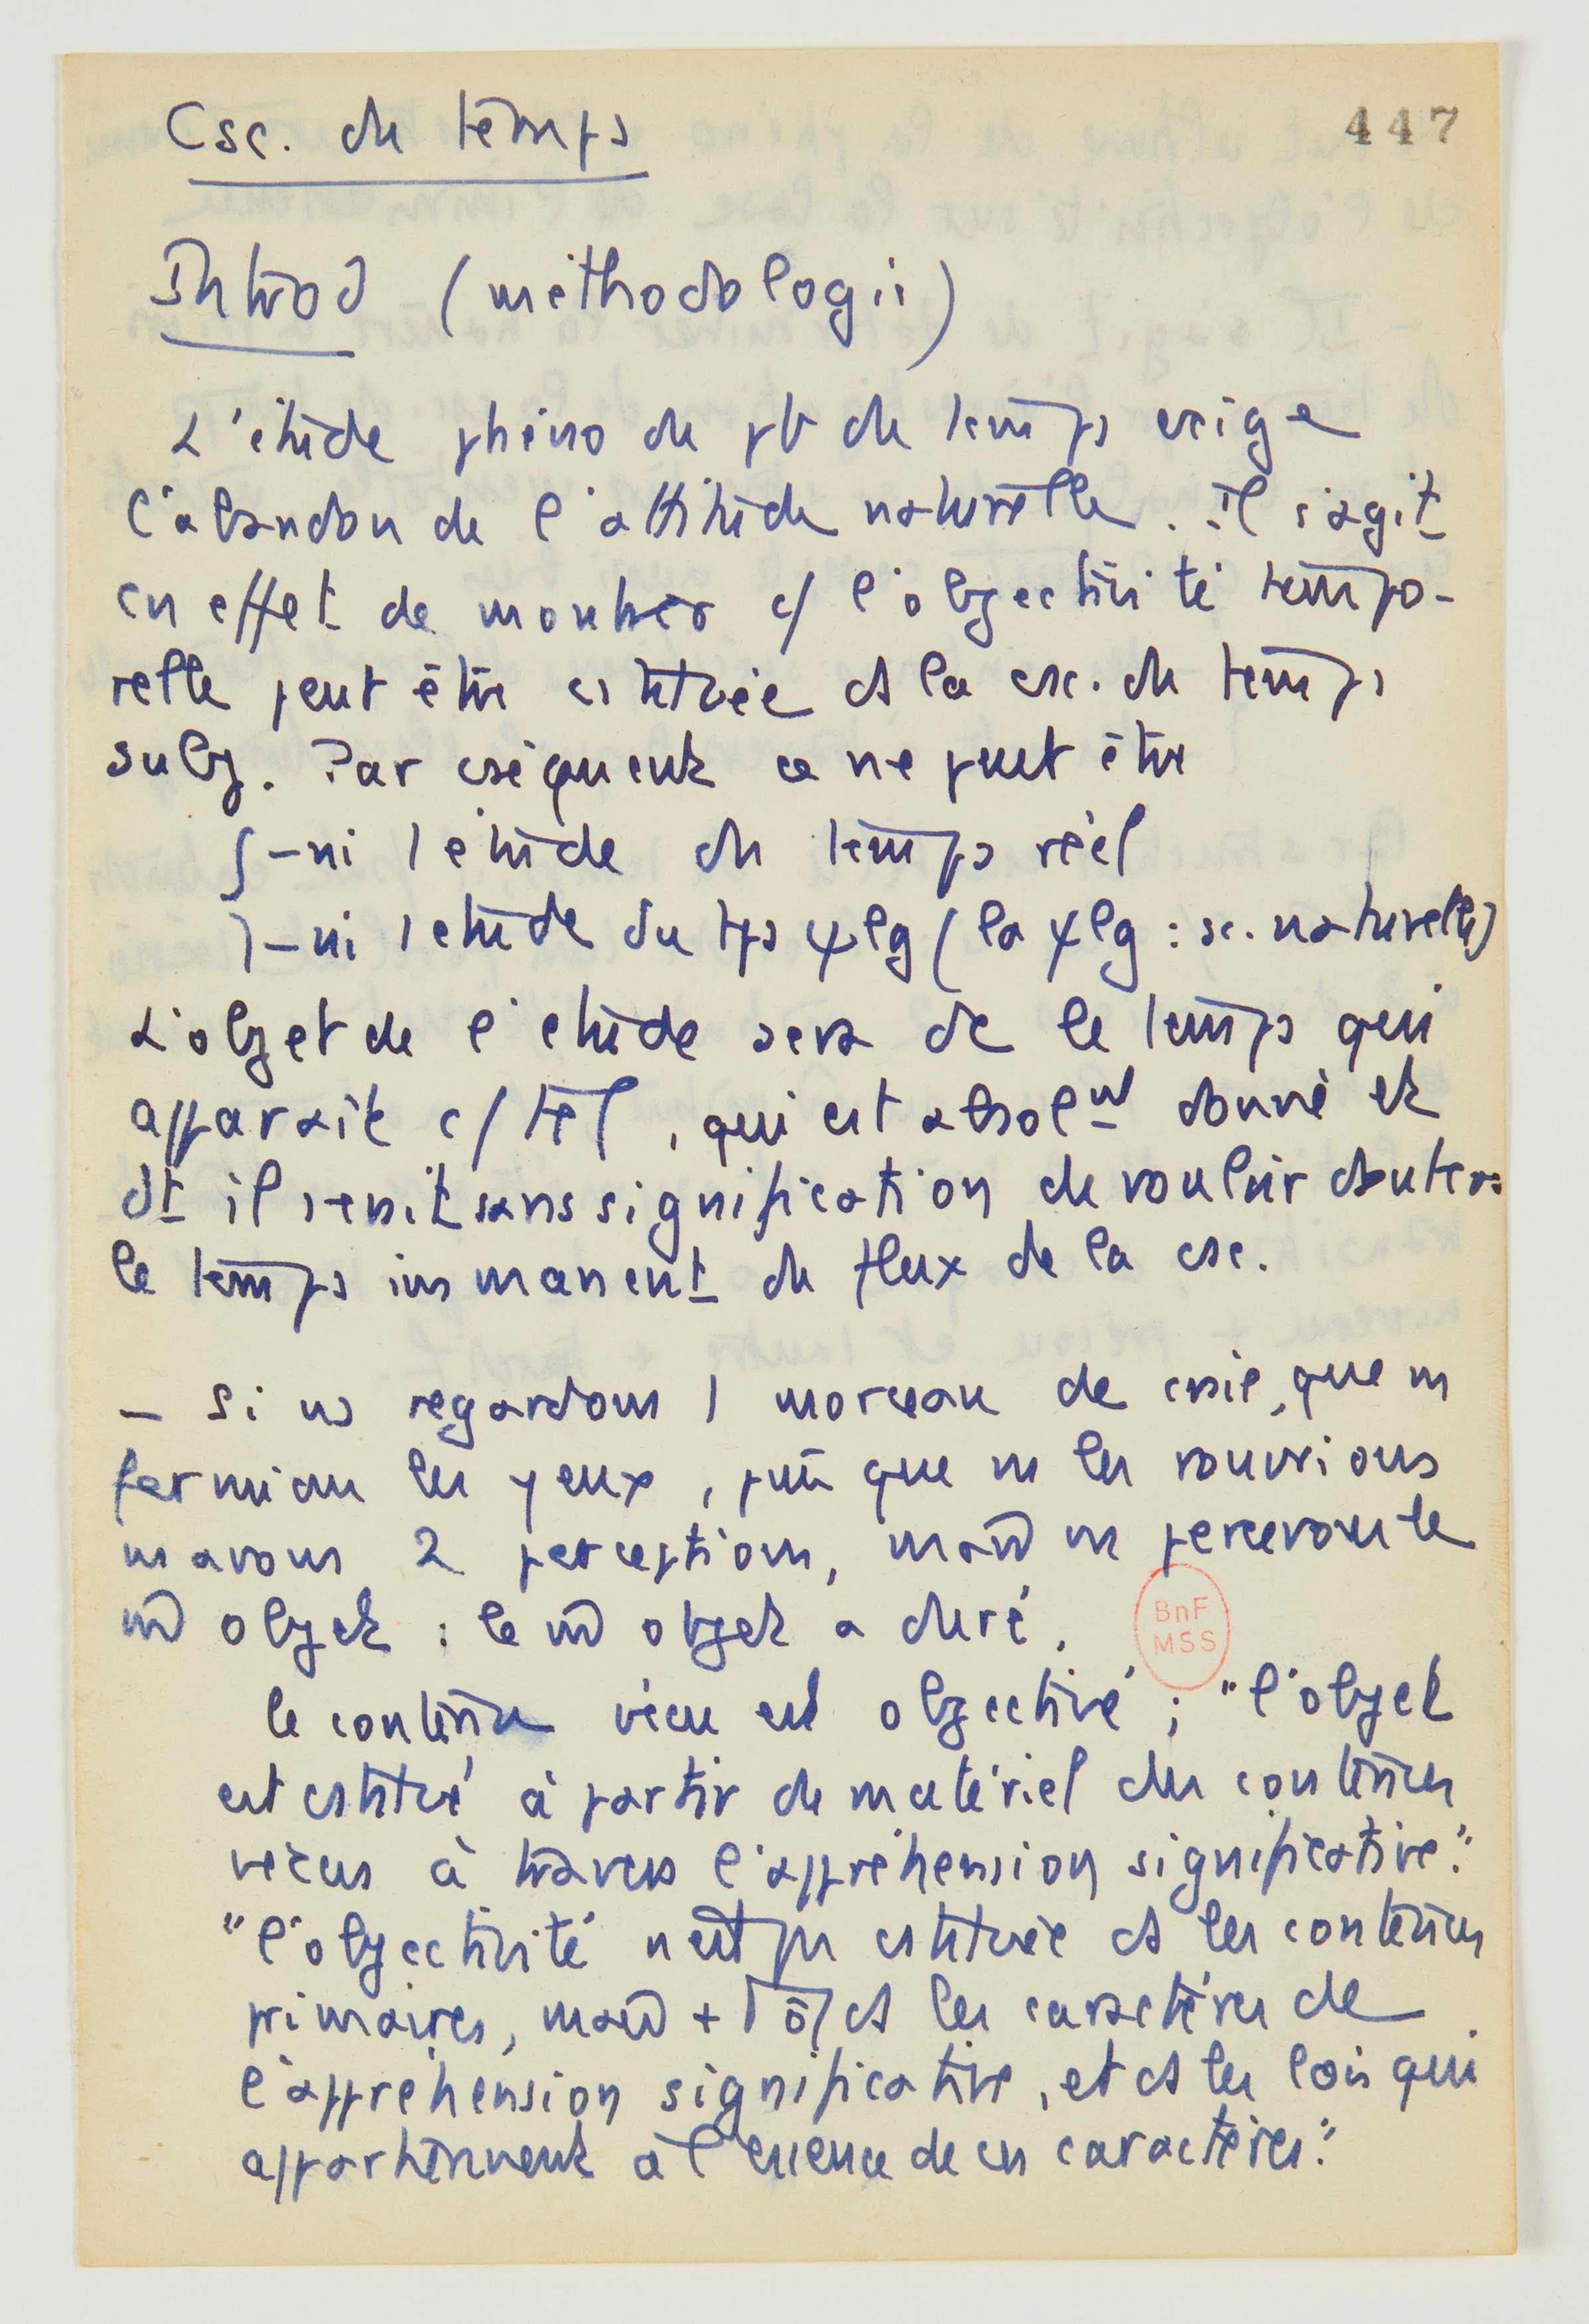 Csc. du temps
447
Introd (méthodologie)
L'étude phéno du pb du temps exige
l'abandon de l'attitude naturelle. il s'agit
en effet de montrer c/ l'objectivité tempo-
relle peut être cstituée ds la csc. du temps
subj. Par cséquent ce ne peut être
- ni l'étude du temps réel
- ni l'étude du tps ψlg (la ψlg : sc. naturelle)
L'objet de l'étude sera dc le temps qui
apparait c/ tel, qui est absolnt donné et
dt il serait sans signification de vouloir douter:
le temps immanent du flux de la csc.
- Si ns regardons 1 morceau de craie, que ns
fermions les yeux, puis que ns les rouvrions
ns avons 2 perceptions, mais ns percevons le
m̂ objet : le m̂ objet a duré.
BnF
MSS
le contenu vécu est objectivé ; "l'objet
est cstitué à partir du matériel des contenus
vécus à travers l'appréhension significative."
"l'objectivité n'est pas cstituée ds les contenus
primaires, mais ds les caractères de
l'appréhension significative, et ds les lois qui
appartiennent à l'essence de ces caractères."